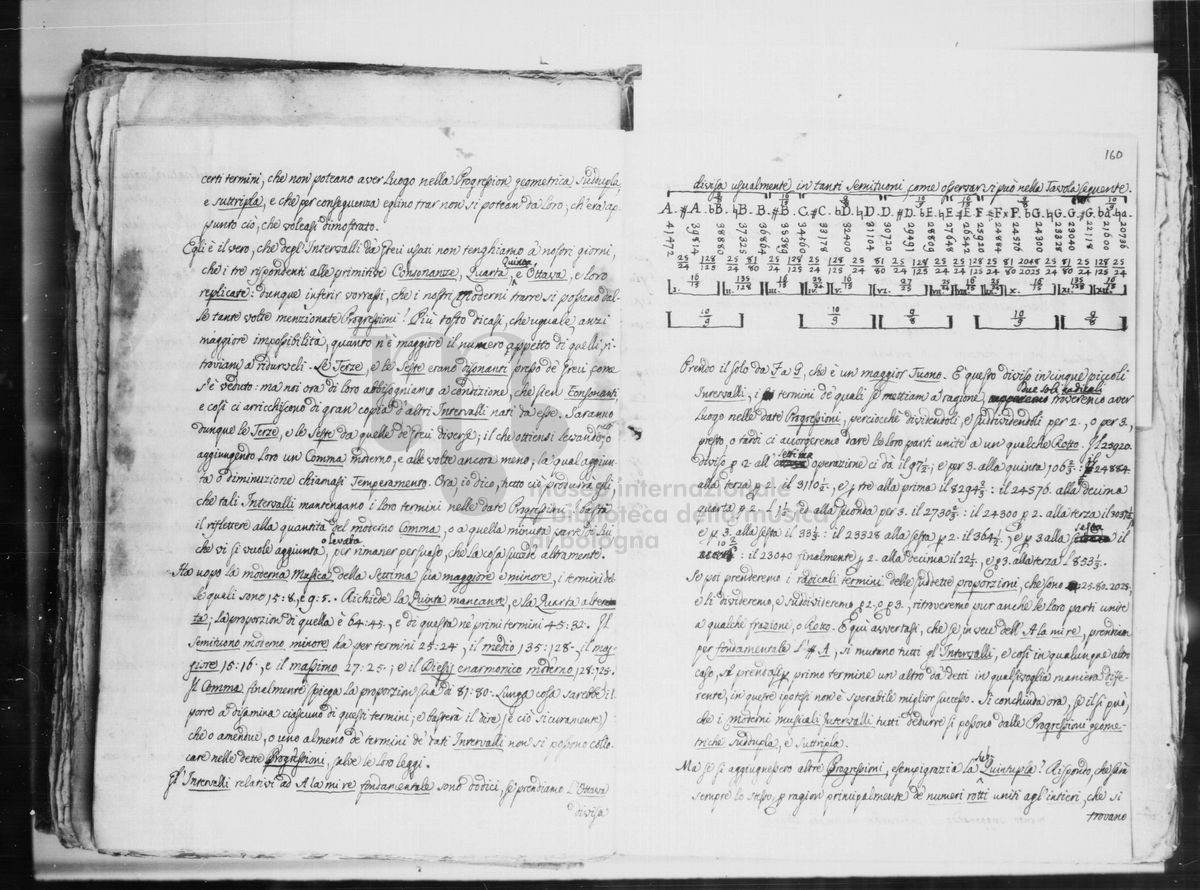 certi termini, che non poteano aver luogo nella Progression geometrica Suddupla,
e suttripla, e che per conseguenza eglino trar non si potean da loro; ch'era ap
punto ciò, che voleasi dimostrato.
Egli è il vero, che degl'Intervalli da' Greci usati non tenghiamo a' nostri giorni,
che i tre rispondenti alle primitive Consonanze, Quarta, Quinta, e Ottava, e loro
replicate: dunque inferir vorrassi, che i nostri Moderni trarre si possano dal-
le tante volte menzionate Progressioni? Più tosto dicasi, che uguale anzi
maggiore impossibilità, quanto n'è maggiore il numero appetto di quelli, ri-
troviam a ridurveli. Le Terze, e le Seste erano dissonanti presso de' Greci come
s'è veduto: ma noi ora di loro abbisogniamo a condizione, che sien Consonanti,
e così ci arricchiscono di gran copia d'altri Intervalli nati da esse. Saranno
dunque le Terze, e le Seste da quelle de' Greci diverse; il che ottiensi levando, o
aggiungendo loro un Comma moderno, e alle volte ancora meno; la qual aggiun-
ta o diminuzione chiamasi Temperamento. Ora, io dico, tutto ciò procurá egli,
che tali Intervalli mantengano i loro termini nelle date Progressioni? basta
il riflettere alla quantità del moderno Comma, o a quella minuta parte di lui
che vi si vuole aggiunta, o levata, per rimaner persuaso, che la cosa succede altramente.
Ha uopo la moderna Musica della Settima sia maggiore e minore, i termini del-
le quali sono 15:8, e 9:5. Richiede la Quinta mancante, e la Quarta altera
ta; la proporzion di quella è 64:45, e di questa ne' primi termini 45:32. Il
semituono moderno minore ha per termini 25:24, il medio 135:128, il mag-
giore 15:16, e il massimo 27:25; e il Diesis enarmonico moderno 128:125.
Il Comma finalmente spiega la proporzion sua di 81:80. Lunga cosa sarebbe il
porre a disamina ciascuno di questi termini; e basterà il dire (e ciò sicuramente)
che o amendue, o uno almeno de' termini de' tati Intervalli non si possono collo
care nelle dette Progressioni, salve le loro leggi.
Gl'Intervalli relativi ad A la mi re fondamentale sono dodici, se prendiamo l'Ottava
divisa
160
divisa ugualmente in tanti Semituoni, come osservar si può nella Tavola seguente.
A. #A. bB. ♮B. B. #B. C. #C. bD. ♮D. D. #D. bE. ♮E. #E. F. #F. xF. bG. ♮G. G. #G. ba. ♮a.
41472 39814 38880 37325 36864 35389 34560 33178 32400 31104 30720 29491 28809 27648 26542 25920 24884 24576 24300 23328 23040 22118 21600 20736
I. II. III. IV. V. VI. VII. VIII. IX. X. XI. XII.
10/9 10/9 9/8 10/9 9/8
Prendo il solo da F a G, che è un maggior Tuono. E questo diviso in cinque piccoli
Intervalli, i termini de' quali se mettiam a ragione, due soli radicali troveremo aver
luogo nelle date Progressioni, perciocchè dividendoli, e suddividendoli per 2, o per 3,
presto, o tardi ci accorgeremo dare le loro parti unite a un qualche Rotto. Il 25920
diviso p 2 all' settima operazione ci dà il 97½; e per 3. alla quinta 106⅔: il 24884
alla terza p 2. il 3110½, e p tre alla prima il 8294⅔: il 24576. alla decima
quarta p 2. il 1½, ed alla seconda per 3. il 2730⅔: il 24300 p 2. alla terza il 3037½
e p 3. alla sesta il 33⅓: il 23328 alla sesta p 2: il 364½, e p 3 alla sesta il
10⅔: il 23040 finalmente p 2. alla decima il 22½, e p 3. alla terza l'853⅓.
Se poi prenderemo i radicali termini delle suddette proporzioni, che sono 25. 80. 2025.
e li divideremo, e suddivideremo p 2. o p 3., ritroveremo pur anche le loro parti unite
a qualche frazione, o Rotto. E quì avvertasi, che se in vece dell'A la mi re, prendiam
per fondamentale l'#A, si mutano tutti gl'Intervalli, e così in qualunque altro
caso, se prendasi p primo termine un altro da' detti in qualsivoglia maniera diffe-
rente, in queste ipotesi non è sperabile miglior sucesso. Si conchiuda ora, se il si può,
che i moderni musicali Intervalli tutti dedurre si possono dalle Progressioni geome-
triche suddupla, e suttripla.
Ma se si aggiugnessero altre Progressioni, esempigrazia la subQuintupla? Rispondo, che sarà
sempre lo stesso, p ragioni principalmente de' numeri rotti uniti agl'intieri, che si
trovano
museo internazionale
e biblioteca della musica
di bologna